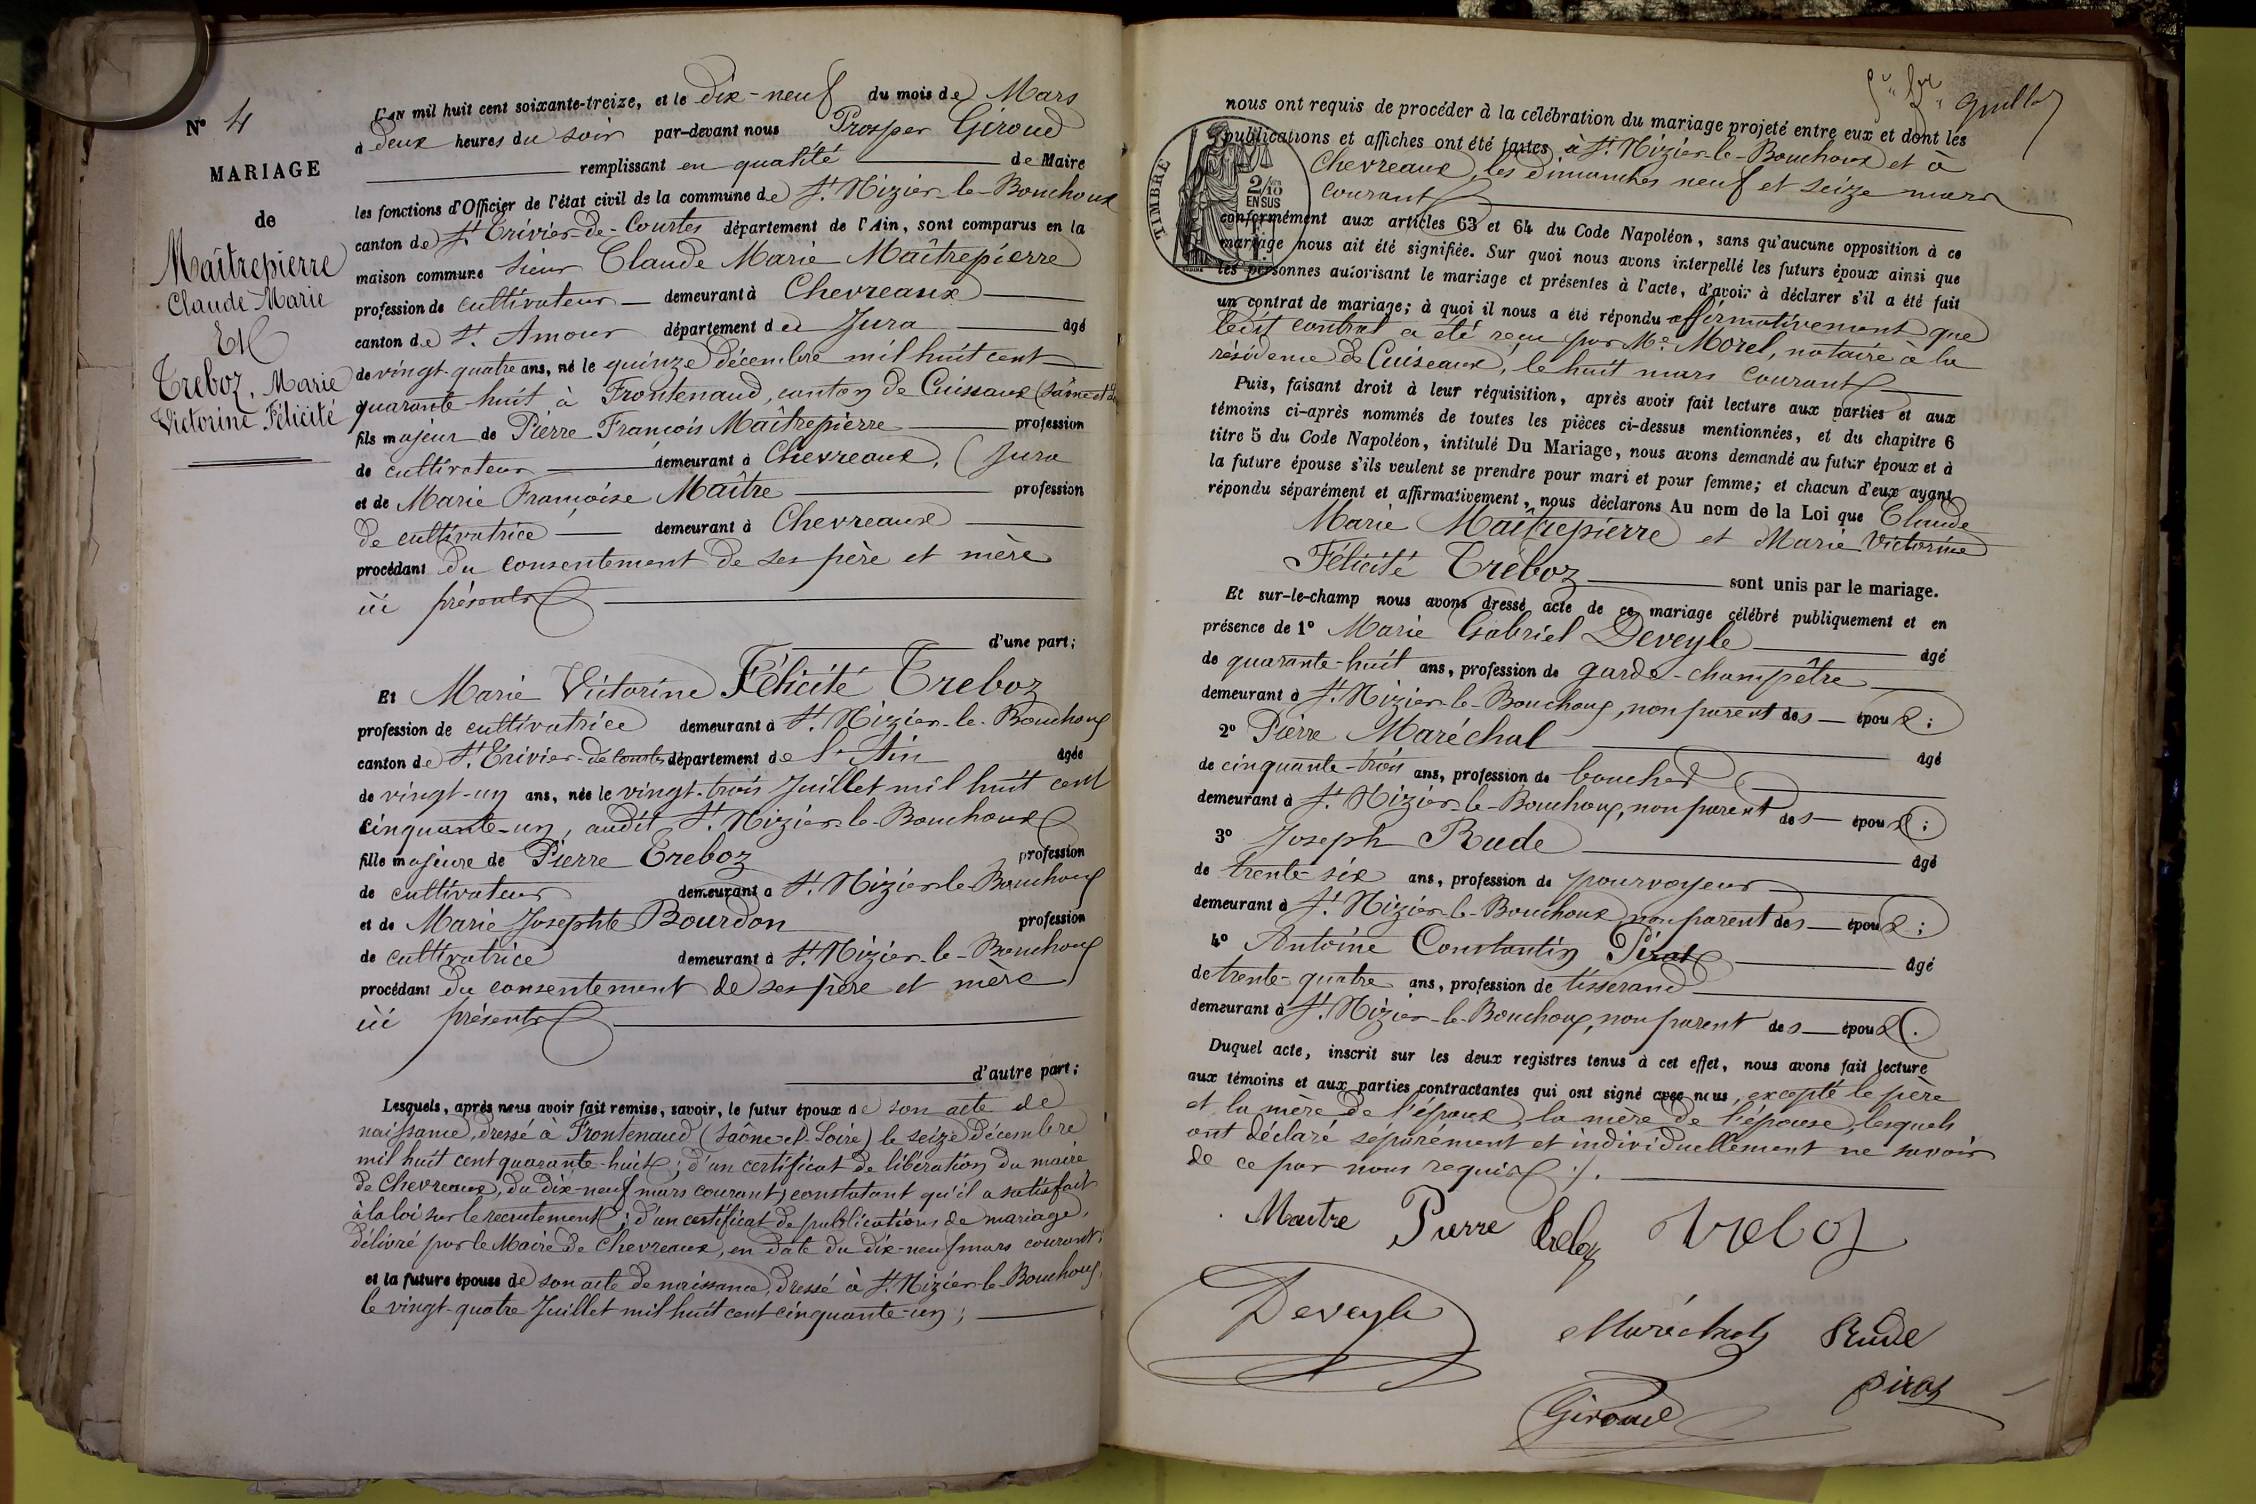 N° 4
MARIAGE
de
Maîtrepierre
Claude Marie
Et
Treboz, Marie
Victorine Félicité
L'an mil huit cent soixante-treize, et le dix-neuf du mois de Mars
à deux heures du soir par-devant nous Prosper Giroud
remplissant en qualité de Maire
les fonctions d'Officier de l'état civil de la commune de St Nizier-le-Bouchoux
canton de St Trivier-de-Courtes département de l'Ain, sont comparus en la
maison commune sieur Claude Marie Maîtrepierre
profession de cultivateur demeurant à Chevreaux
canton de St Amour département de Jura âgé
de vingt-quatre ans, né le quinze décembre mil huit cent
quarante-huit à Frontenaud, canton de Cuiseaux (Saône et
fils majeur de Pierre François Maîtrepierre profession
de cultivateur demeurant à Chevreaux, (Jura
et de Marie Françoise Maître profession
de cultivatrice demeurant à Chevreaux
procédant du consentement de ses père et mère
ici présents
d'une part;
Et Marie Victorine Félicité Treboz
profession de cultivatrice demeurant à St Nizier-le-Bouchoux
canton de St Trivier-de-Courtes département de l'Ain âgée
de vingt-un ans, née le vingt-trois Juillet mil huit cent
cinquante-un, audit St Nizier-le-Bouchoux
fille majeure de Pierre Treboz profession
de cultivateur demeurant à St Nizier-le-Bouchoux
et de Marie Josephte Bourdon profession
de cultivatrice demeurant à St Nizier-le-Bouchoux
procédant du consentement de ses père et mère
ici présents
d'autre part;
Lesquels, après nous avoir fait remise, savoir, le futur époux de son acte de
naissance, dressé à Frontenaud (Saône-et-Loire) le seize décembre
mil huit cent quarante-huit; d'un certificat de libération du maire
de Chevreaux, du dix-neuf mars courant, constatant qu'il a satisfait
à la loi sur le recrutement; d'un certificat de publications de mariage,
délivré par le Maire de Chevreaux, en date du dix-neuf mars courant;
et la future épouse de son acte de naissance, dressé à St Nizier-le-Bouchoux,
le vingt-quatre Juillet mil huit cent cinquante-un;
nous ont requis de procéder à la célébration du mariage projeté entre eux et dont les
publications et affiches ont été faites à St Nizier-le-Bouchoux et à
Chevreaux, les dimanches neuf et seize mars
courant
TIMBRE
2/10
EN SUS
conformément aux articles 63 et 64 du Code Napoléon, sans qu'aucune opposition à ce
mariage nous ait été signifiée. Sur quoi nous avons interpellé les futurs époux ainsi que
les personnes autorisant le mariage et présentes à l'acte, d'avoir à déclarer s'il a été fait
un contrat de mariage; à quoi il nous a été répondu affirmativement que
ledit contrat a été reçu par Me Morel, notaire à la
résidence de Cuiseaux, le huit mars courant
Puis, faisant droit à leur réquisition, après avoir fait lecture aux parties et aux
témoins ci-après nommés de toutes les pièces ci-dessus mentionnées, et du chapitre 6
titre 5 du Code Napoléon, intitulé Du Mariage, nous avons demandé au futur époux et à
la future épouse s'ils veulent se prendre pour mari et pour femme; et chacun d'eux ayant
répondu séparément et affirmativement, nous déclarons Au nom de la Loi que Claude
Marie Maîtrepierre et Marie Victorine
Félicité Treboz sont unis par le mariage.
Et sur-le-champ nous avons dressé acte de ce mariage célébré publiquement et en
présence de 1° Marie Gabriel Deveyle âgé
de quarante-huit ans, profession de garde-champêtre
demeurant à St Nizier-le-Bouchoux, non parent des époux;
2° Pierre Maréchal âgé
de cinquante-trois ans, profession de boucher
demeurant à St Nizier-le-Bouchoux, non parent des époux;
3° Joseph Rude âgé
de trente-six ans, profession de pourvoyeur
demeurant à St Nizier-le-Bouchoux non parent des époux;
4° Antoine Constantin Pirat âgé
de trente-quatre ans, profession de tisserand
demeurant à St Nizier-le-Bouchoux, non parent des époux.
Duquel acte, inscrit sur les deux registres tenus à cet effet, nous avons fait lecture
aux témoins et aux parties contractantes qui ont signé avec nous, excepté le père
et la mère de l'époux, la mère de l'épouse, lesquels
ont déclaré séparément et individuellement ne savoir
de ce par nous requis ./.
Maitre Pierre Treboz Treboz
Deveyle Maréchal Rude
Giroud Pirat